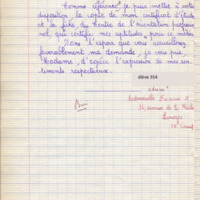 Comme référence je puis mettre à votre
disposition la copie de mon certificat d'étude
et la fiche du Centre de l'orientation profession
nel, que certifie mes aptitudes pour ce métier
Dans l'espoir que vous accueillerez
favorablement ma demande, je vous prie,
Madame, d'agréer l'expression de mes sen
timents respectueux.
élève 354
Mademoiselle